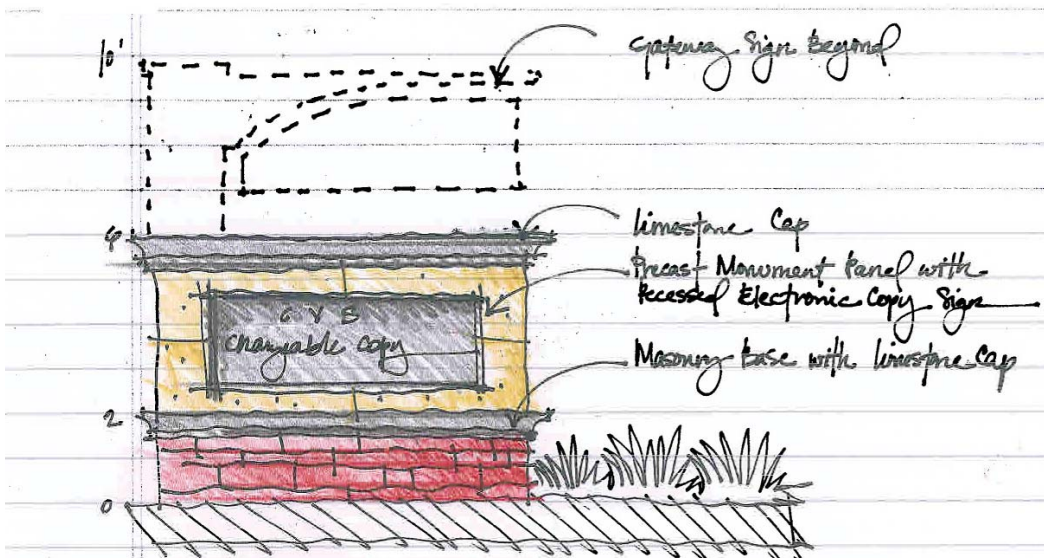 10'
Gateway Sign Beyond
6
Limestone Cap
Precast Monument Panel with
Recessed Electronic Copy Sign
C V S
Changable Copy
Masonry Base with limestone Cap
2
0